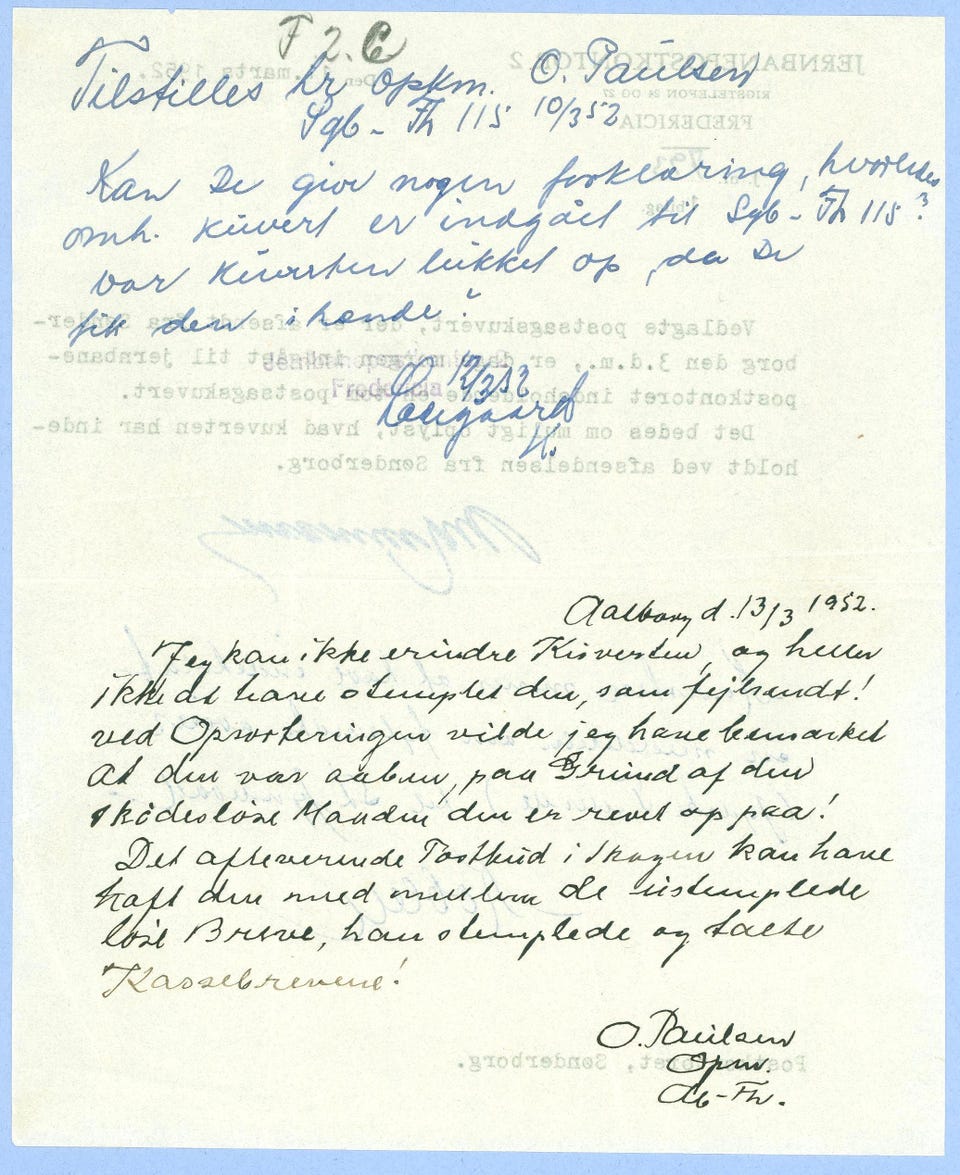 F 2. C
Tilstilles hr opkm. O. Paulsen
Sgb - Th 115 10/3 52
Kan De give nogen forklaring, hvorledes
omh. kuvert er indgået til Sgb - Th 115?
var kuverten lukket op, da De
fik den i hænde?
Fredericia
12/3 52
Aalborg d. 13/3 1952.
Jeg kan ikke erindre Kuverten, og heller
ikke at have stemplet den, som fejlsendt!
ved Opsorteringen vilde jeg have bemærket
at den var aaben, paa Grund af den
skødesløse Manden, den er revet op paa!
Det afleverende Postbud i Skagen kan have
haft den med mellem de ustemplede
løse Breve, han stemplede og talte
Kassebrevene!
O. Paulsen
Opm.
Ab-Th.
JERNBANEPOSTKONTOR 2
RIGSTELEFON 24 OG 27
FREDERICIA
Den . marts 1952.
Vedlagte postsagskuvert, der er afsendt fra Sønder-
borg den 3.d.m., er dags morgen indgået til jernbane-
postkontoret indeholdende en tom postsagskuvert.
Det bedes om muligt oplyst, hvad kuverten har inde-
holdt ved afsendelsen fra Sønderborg.
Postkontoret, Sønderborg.